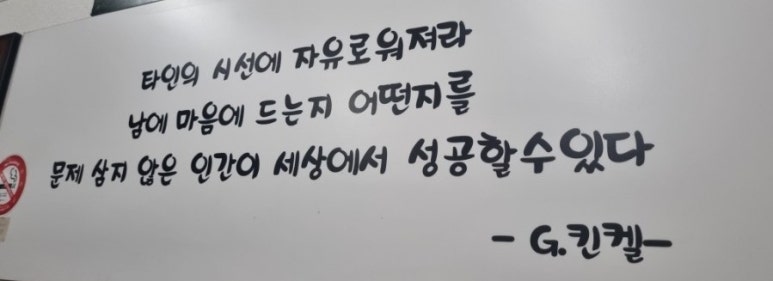 타인의 시선에 자유로워져라
남에 마음에 드는지 어떤지를
문제 삼지 않은 인간이 세상에서 성공할수있다
- G.킨켈-